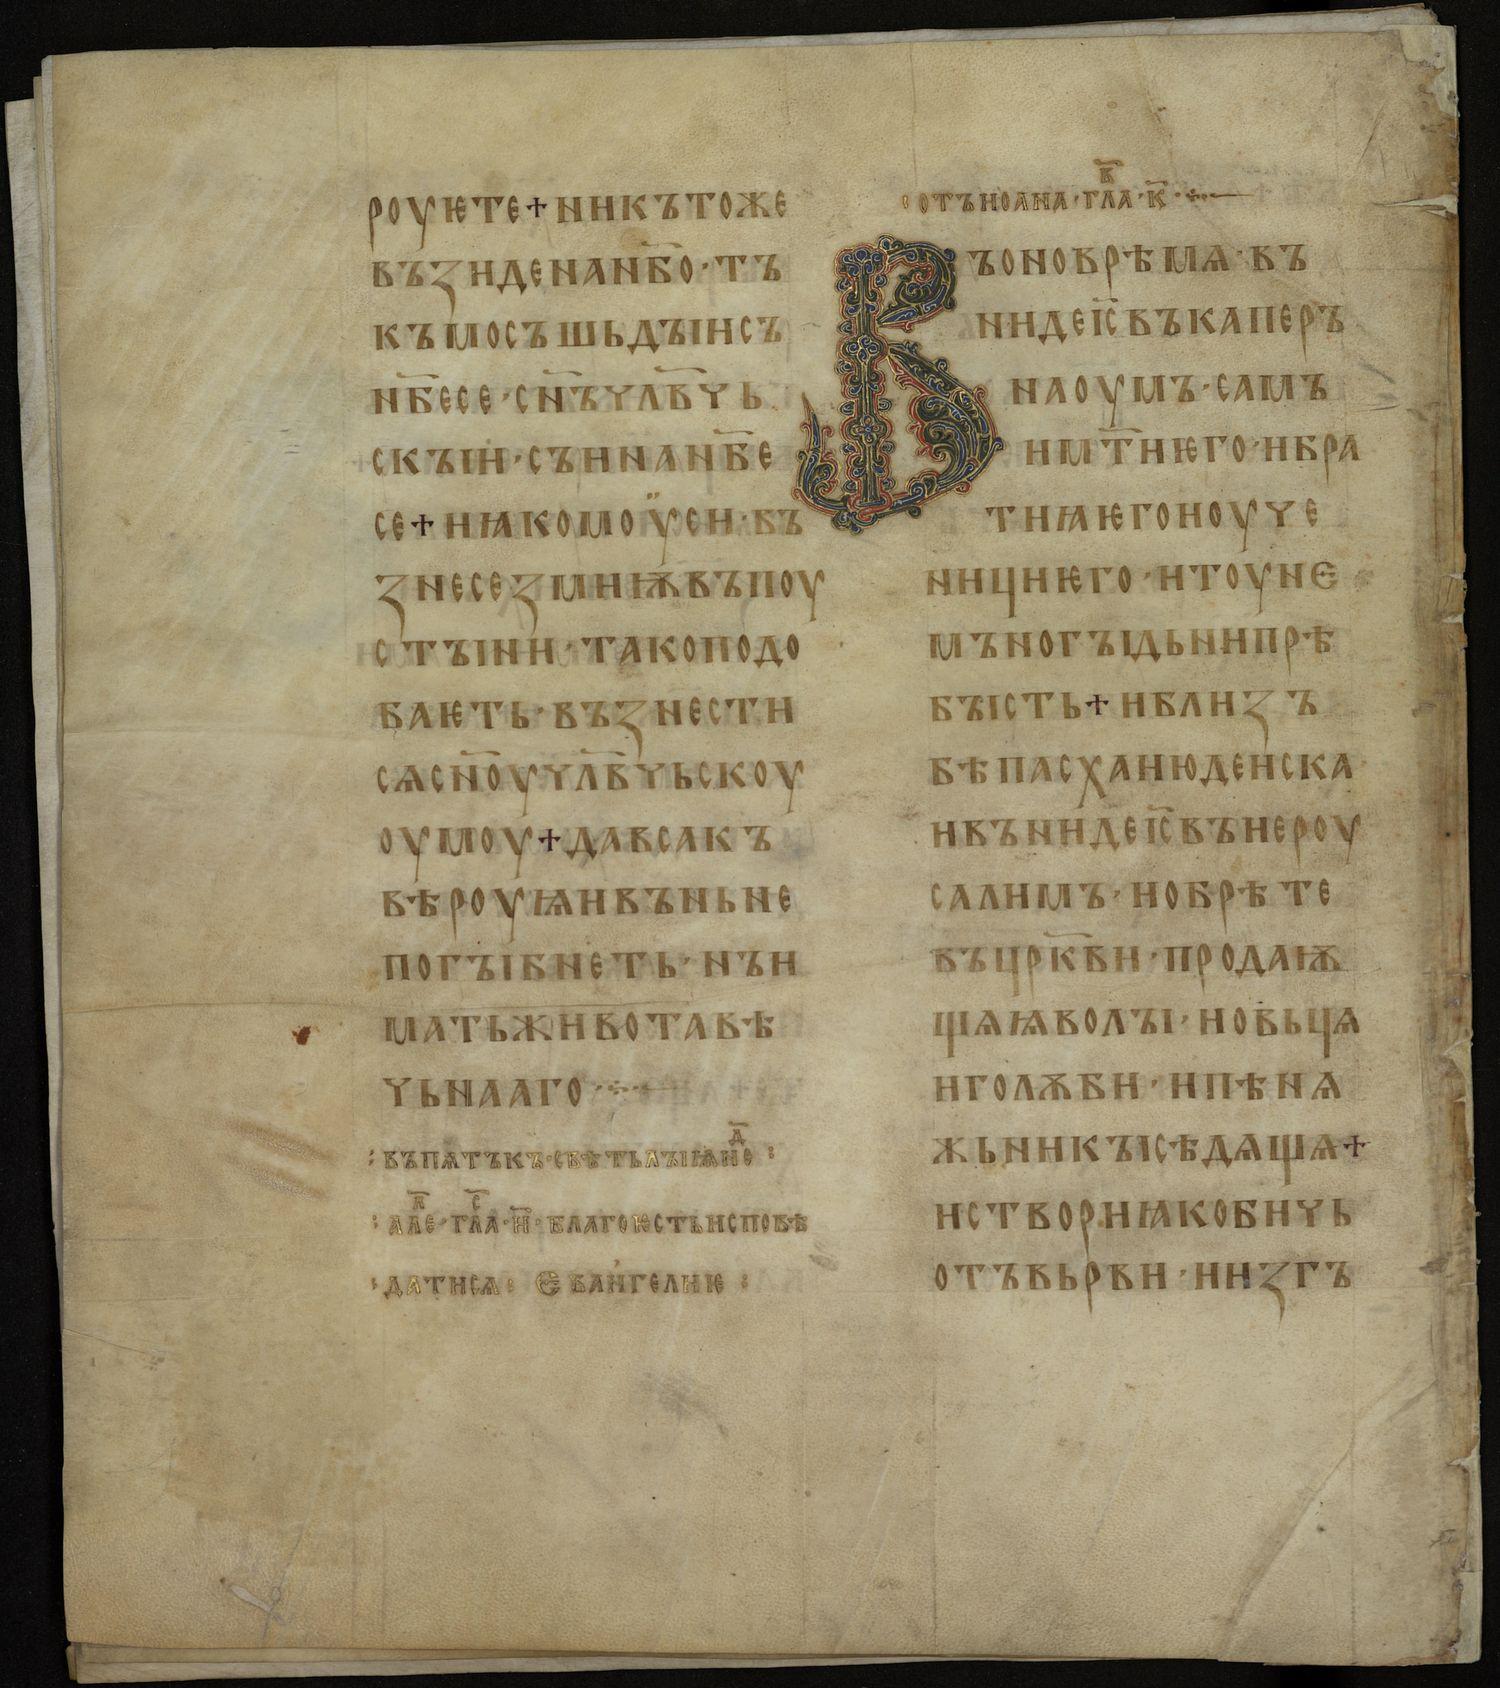 роуѥте ✢ никътоже
възиденан҃бо · тъ
къмосъшьдꙑисъ
н҃бесе · сн҃ъчл҃вчь
скꙑи · сꙑинан҃бе
се ✢ иꙗкомоѵ̈си · въ
знесезмиѭвъпоу
стꙑни · такоподо
баѥть · възнести
сѧсн҃оучл҃вчьскоу
оумоу ✢ давсакъ
вѣроуѩивъньне
погꙑбнеть · нъи
матьживотавѣ
чьнааго ·
: въпѧтъкъ · свѣтьлꙑѩне҃д :
: але҃л · гла҃с · и҃ · благоѥстьисповѣ
: датисѧ : Еваньгелиѥ :
: отъиоана · гл҃ва · к҃ ·
Въоноврѣмѧ · въ
ниде꙯і҃свъкаперъ
наоумъ · самъ
им҃тиѥго · ибра
тиꙗѥгоиоуче
нициѥго · итоуне
мъногꙑдьнипрѣ
бꙑсть ✢ иблизъ
бѣпасхаиюденска
ивънидеі҃свъиероу
салимъ · иобрѣте
въцр҃кви · продаѭ
щѧꙗволꙑ · иовьцѧ
иголѫби · ипѣнѧ
жьникꙑсѣдѧщѧ ✢
иствориꙗкобичь
отъвьрви · иизгъ